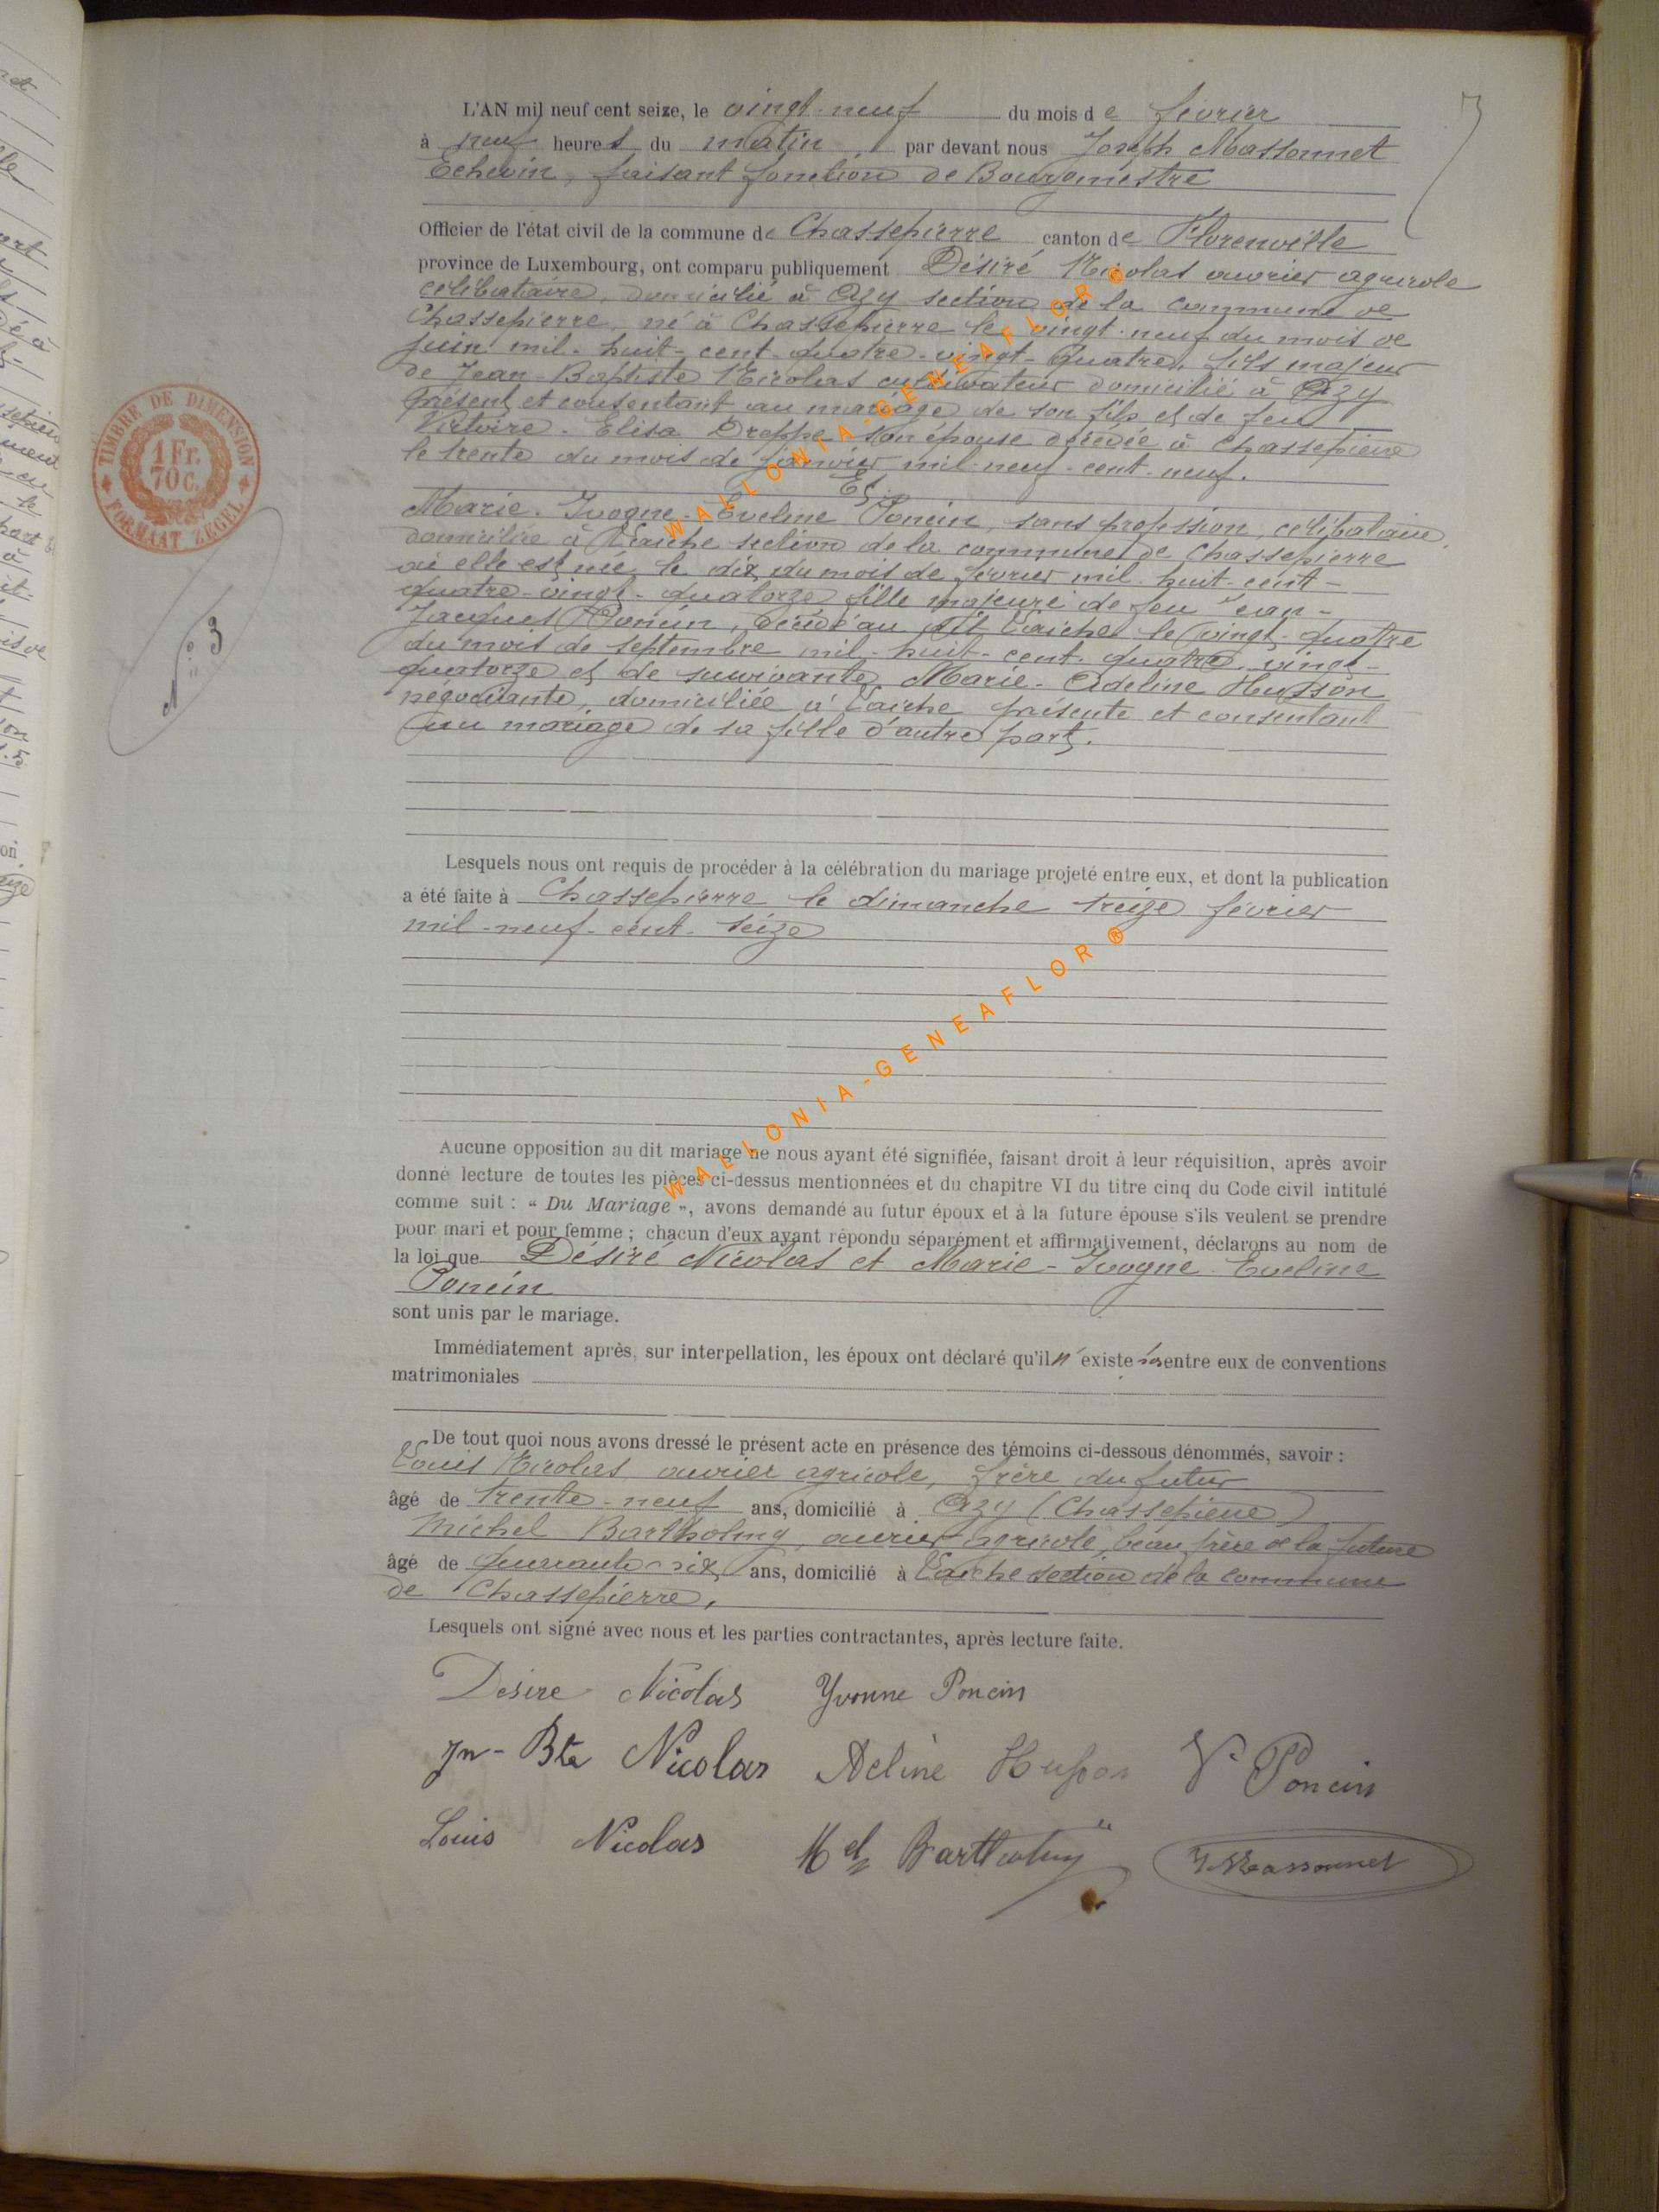 L'AN mil neuf cent seize, le vingt-neuf du mois de février
à neuf heures du matin, par devant nous Joseph Massonnet
Echevin, faisant fonction de Bourgmestre
Officier de l'état civil de la commune de Chassepierre canton de Florenville
province de Luxembourg, ont comparu publiquement Désiré Nicolas ouvrier agricole
célibataire, domicilié à Azy section de la commune de
Chassepierre, né à Chassepierre le vingt-neuf du mois de
juin mil-huit-cent-quatre-vingt-quatre, fils majeur
de Jean-Baptiste Nicolas cultivateur domicilié à Azy
présent et consentant au mariage de son fils et de feu
Victoire-Elisa Dreppe son épouse décédée à Chassepierre
le trente du mois de janvier mil-neuf-cent-neuf.
Et
Marie-Ivogne-Eveline Poncin, sans profession, célibataire,
domiciliée à Laiche section de la commune de Chassepierre
où elle est née le dix du mois de février mil-huit-cent-
quatre-vingt-quatorze fille majeure de feu Jean-
Jacques Poncin, décédé au dit Laiche le vingt-quatre
du mois de septembre mil-huit-cent-quatre-vingt-
quatorze et de survivante Marie-Adeline Husson
négociante, domiciliée à Laiche présente et consentant
au mariage de sa fille d'autre part.
Lesquels nous ont requis de procéder à la célébration du mariage projeté entre eux, et dont la publication
a été faite à Chassepierre le dimanche treize février
mil-neuf-cent-seize
Aucune opposition au dit mariage ne nous ayant été signifiée, faisant droit à leur réquisition, après avoir
donné lecture de toutes les pièces ci-dessus mentionnées et du chapitre VI du titre cinq du Code civil intitulé
comme suit : « Du Mariage », avons demandé au futur époux et à la future épouse s'ils veulent se prendre
pour mari et pour femme ; chacun d'eux ayant répondu séparément et affirmativement, déclarons au nom de
la loi que Désiré Nicolas et Marie-Ivogne-Eveline
Poncin
sont unis par le mariage.
Immédiatement après, sur interpellation, les époux ont déclaré qu'il n'existe pas entre eux de conventions
matrimoniales
De tout quoi nous avons dressé le présent acte en présence des témoins ci-dessous dénommés, savoir :
Louis Nicolas ouvrier agricole, frère du futur
âgé de trente-neuf ans, domicilié à Azy (Chassepierre)
Michel Bartholmy, ouvrier agricole, beau-frère de la future
âgé de quarante-six ans, domicilié à Laiche section de la commune
de Chassepierre.
Lesquels ont signé avec nous et les parties contractantes, après lecture faite.
Desire Nicolas Yvonne Poncin
Jn-Bte Nicolas Adeline Husson V Poncin
Louis Nicolas Mel Bartholmy J. Massonnet
TIMBRE DE DIMENSION
1 Fr.
70 C.
FORMAAT ZEGEL
N° 3
WALLONIA-GENEAFLOR®
WALLONIA-GENEAFLOR®